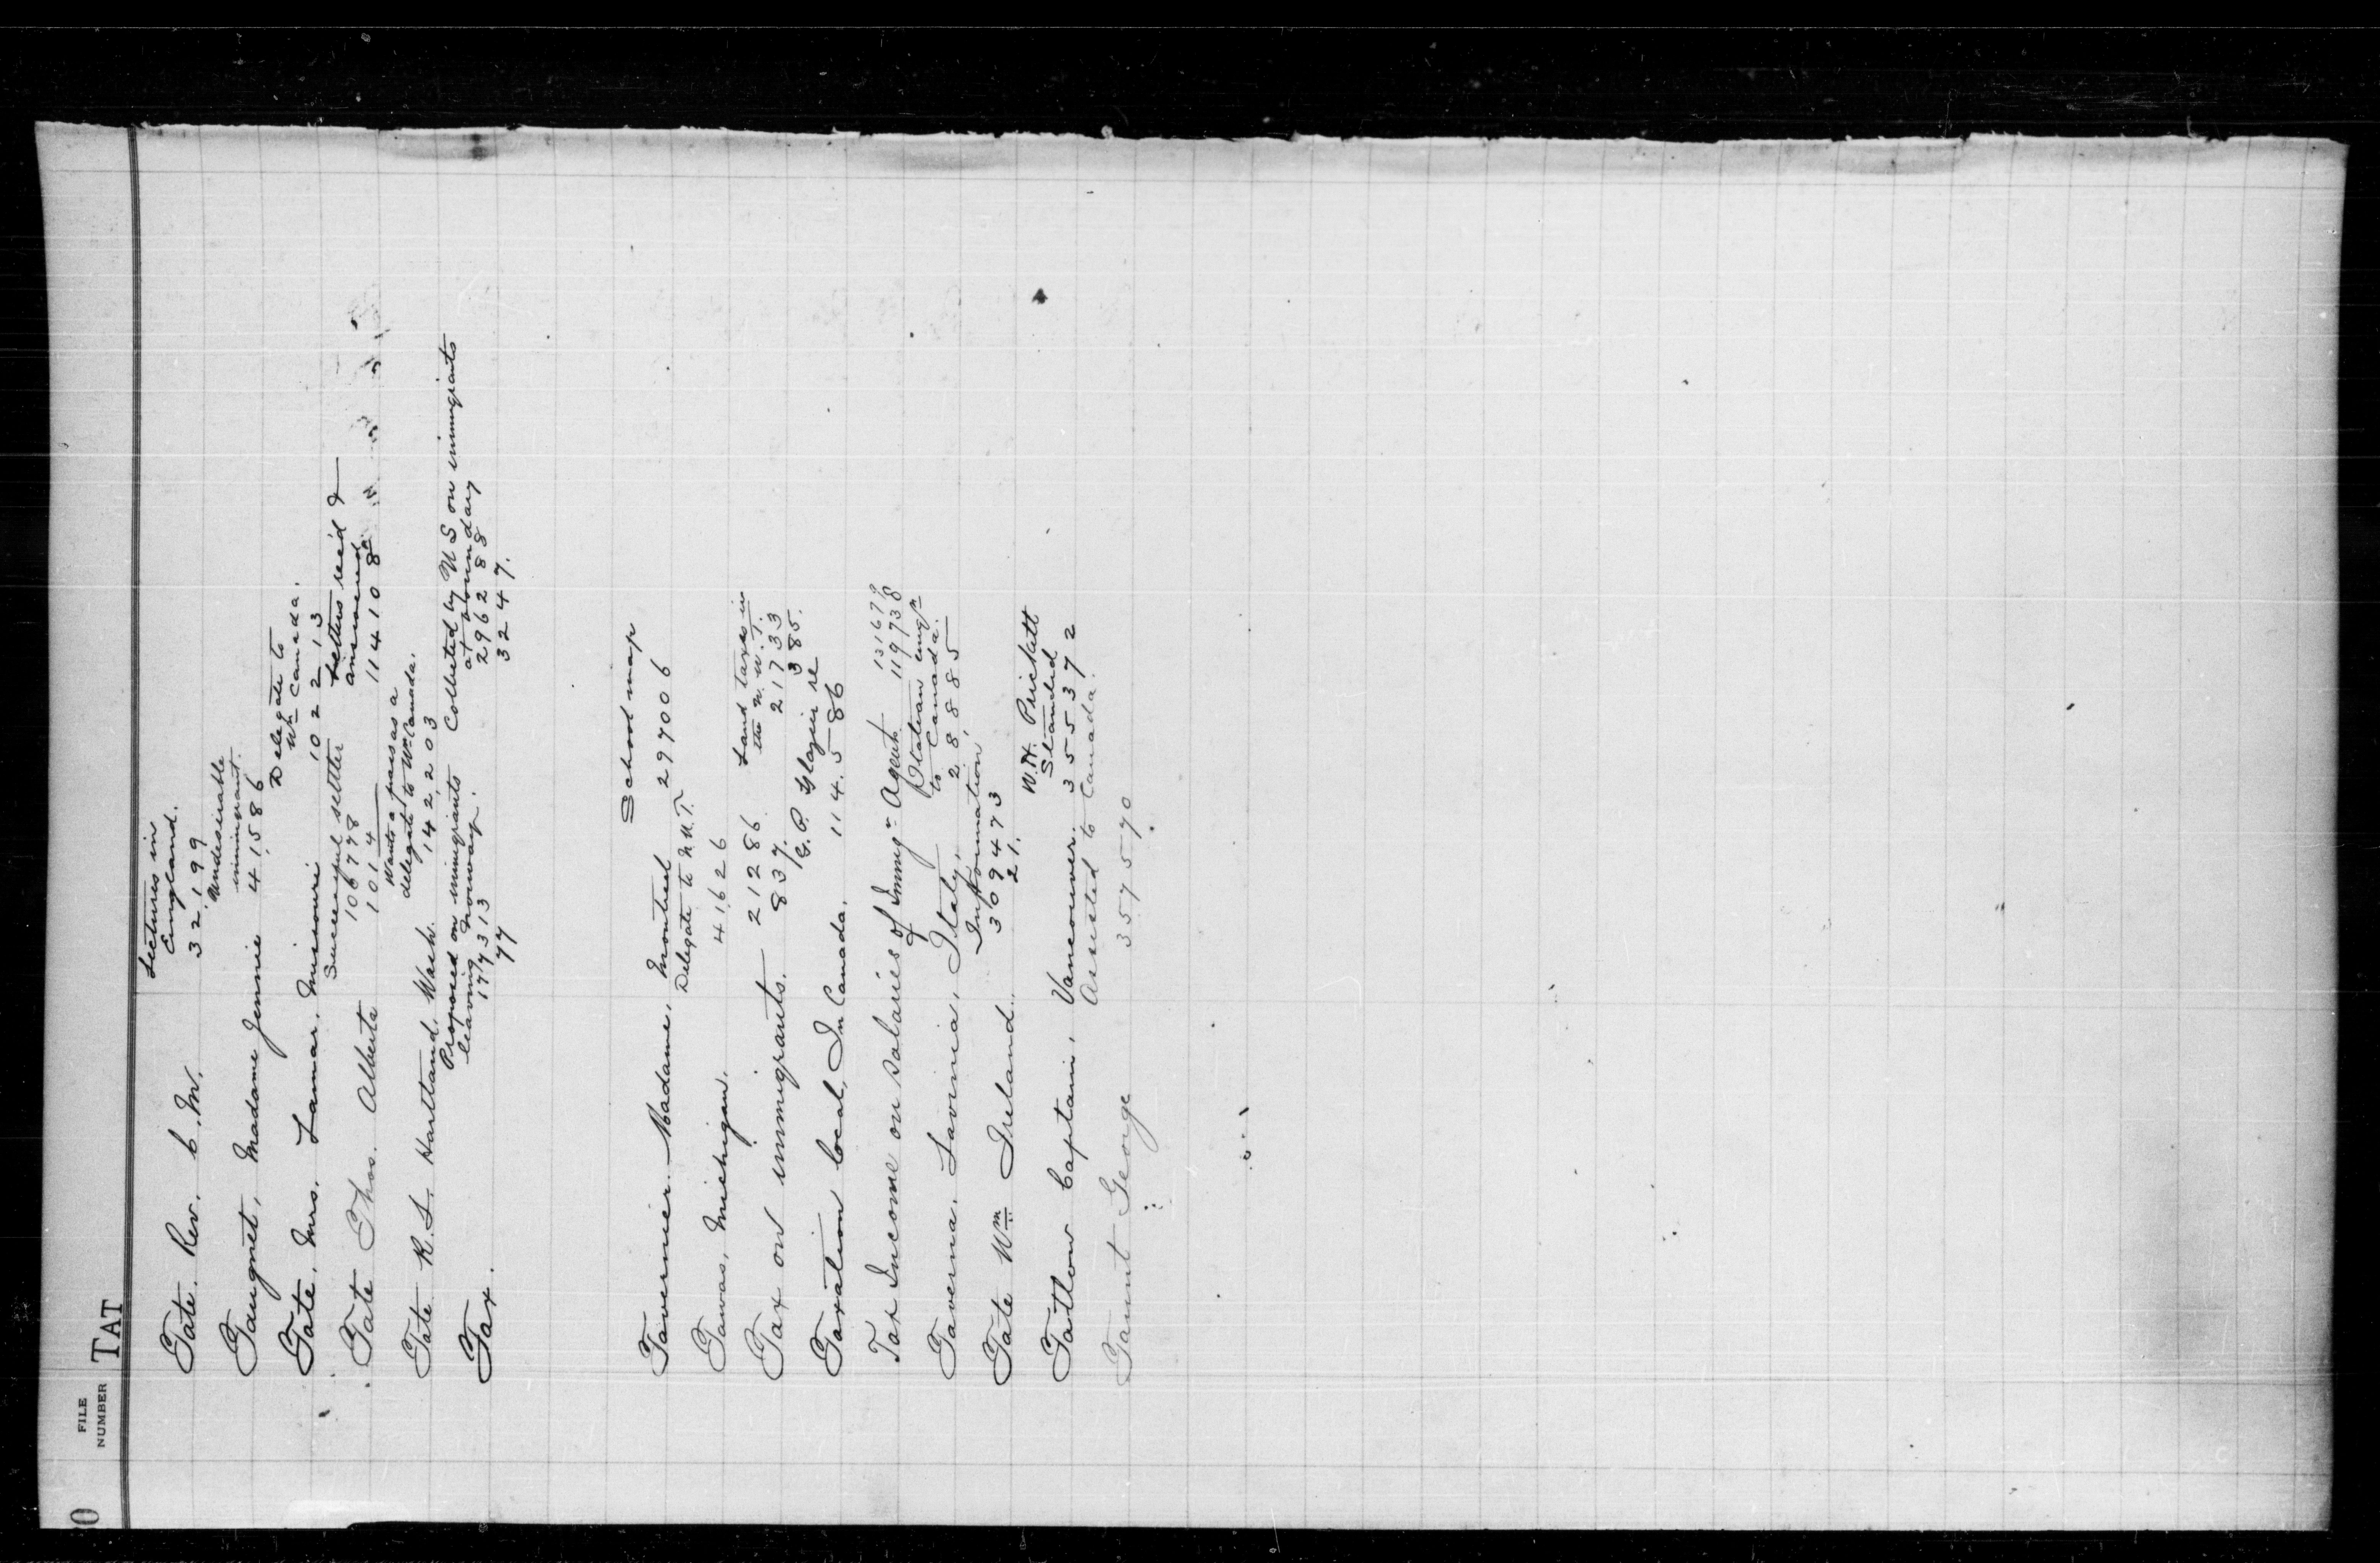 0
FILE
NUMBER
TAT
Lectures in
England.
Tate. Rev. C. M. 32199
Undesirable
immigrant.
Taugnet, Madame Jennie 41586
Delegate to
Wn Canada.
Tate, Mrs. Lamar, Missouri 102213
Successful settler Letters rec'd &
answered
Tate Thos. Alberta 106778 114108
1014
Wants a pass as a
delegate to Wn Canada.
Tate R. S. Hartland, Wash. 142203
Proposed on immigrants Collected by U S on immigrants
leaving Norway. at boundary
Tax. 177313 296288
77 3247.
School map
Tavernier Madame, Montreal 297006
Delegate to N.W.T.
Tawas, Michigan. 41626
Land taxes in
the N. W. T.
Tax on immigrants. 21286 21733
837. 385.
G. P. Glazier re
Taxation local, In Canada. 114.586
131679
Tax Income on salaries of Immigr Agent 119738
Italian emigtn
to Canada.
Taverna. Lavinia, Italy. 28885
Information
Tate Wm Ireland. 309473
21.
W. H. Prickett
Slander
Tatlow Captain, Vancouver. 355372
Assisted to Canada.
Taunt George 357570